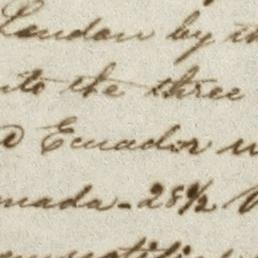 London by th
to the three
Ecuador u
nada - 28½ V